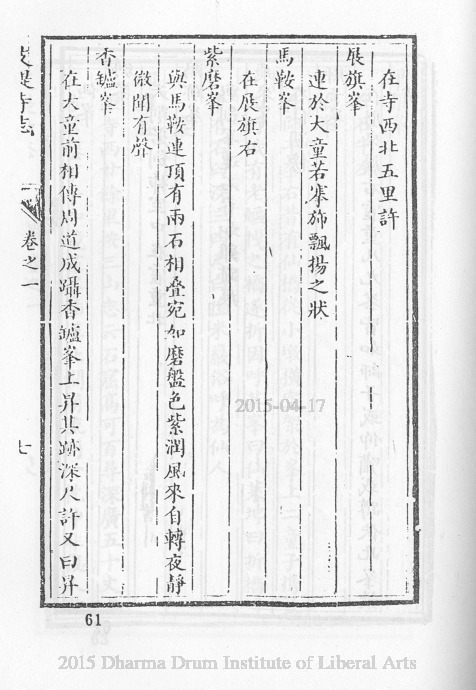 在寺西北五里許
展旗峯
連於大童若搴斾飄揚之狀
馬鞍峯
在展旗右
紫磨峯
與馬鞍連頂有兩石相叠宛如磨盤色紫潤風來自轉夜靜
微聞有聲
香鑪峯
在大童前相傳周道成躡香鑪峯上昇其跡深尺許又曰昇
寺志
卷之一
七
2015-04-17
61
2015 Dharma Drum Institute of Liberal Arts